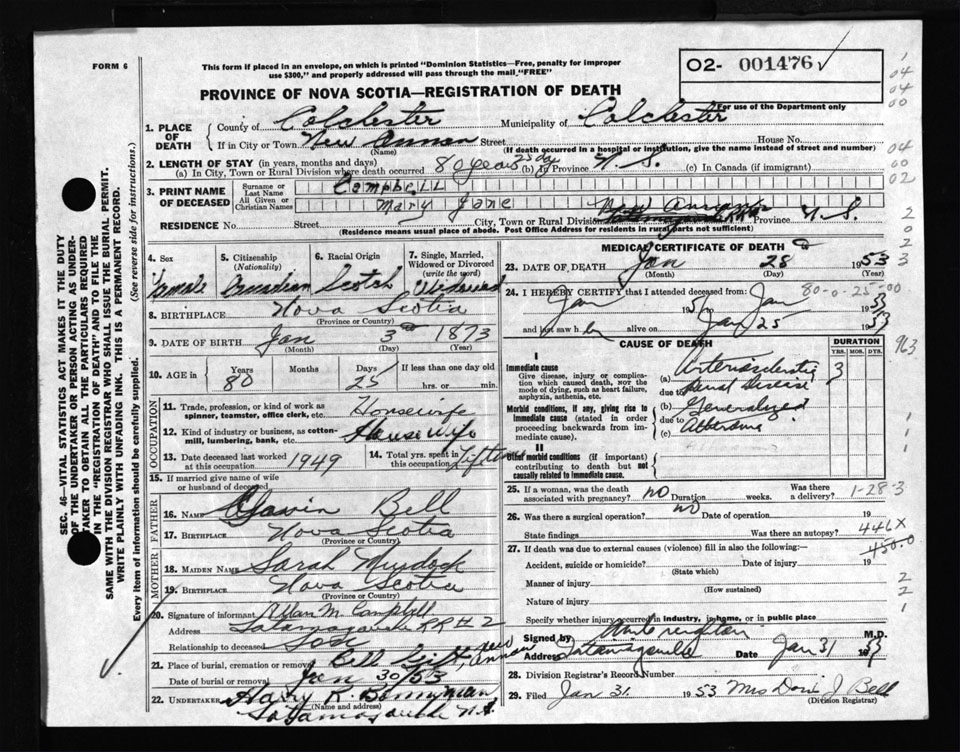 FORM 6
This form if placed in an envelope, on which is printed "Dominion Statistics—Free, penalty for improper
use $300," and properly addressed will pass through the mail "FREE"
O2- 001476 ✓
PROVINCE OF NOVA SCOTIA—REGISTRATION OF DEATH
For use of the Department only
1. PLACE OF DEATH
County of Colchester Municipality of Colchester
If in City or Town New Annan Street House No.
(Name) (If death occurred in a hospital or institution, give the name instead of street and number)
2. LENGTH OF STAY (in years, months and days)
(a) In City, Town or Rural Division where death occurred 80 years 25 dys (b) In Province N. S. (c) In Canada (if immigrant)
3. PRINT NAME OF DECEASED
Surname or Last Name Campbell
All Given or Christian Names Mary Jane
RESIDENCE No. Street City, Town or Rural Division New Annan Province N. S.
(Residence means usual place of abode. Post Office Address for residents in rural parts not sufficient)
4. Sex
Female
5. Citizenship
(Nationality)
Canadian
6. Racial Origin
Scotch
7. Single, Married,
Widowed or Divorced
(write the word)
Widowed
8. BIRTHPLACE Nova Scotia
(Province or Country)
9. DATE OF BIRTH Jan 3 1873
(Month) (Day) (Year)
10. AGE in Years 80 Months Days 25 If less than one day old
hrs. or min.
OCCUPATION
11. Trade, profession, or kind of work as
spinner, teamster, office clerk, etc. Housewife
12. Kind of industry or business, as cotton-
mill, lumbering, bank, etc. Housewife
13. Date deceased last worked
at this occupation 1949
14. Total yrs. spent
in this occupation
15. If married give name of wife
or husband of deceased
FATHER
16. NAME Gavin Bell
17. BIRTHPLACE Nova Scotia
(Province or Country)
MOTHER
18. MAIDEN NAME Sarah Murdoch
19. BIRTHPLACE Nova Scotia
(Province or Country)
20. Signature of informant Allan M. Campbell
Address Tatamagouche RR # 2
Relationship to deceased Son
21. Place of burial, cremation or removal Bell New Annan
Date of burial or removal Jan 30/53
22. UNDERTAKER Harry R. Bonnyman
(Name and address)
Tatamagouche N.S.
MEDICAL CERTIFICATE OF DEATH
23. DATE OF DEATH Jan 28 1953
(Month) (Day) (Year)
24. I HEREBY CERTIFY that I attended deceased from:
80-0-25-00
Jan 195 Jan 1953
and last saw h er alive on Jan 25 1953
CAUSE OF DEATH
DURATION
YRS. MOS. DYS.
I
Immediate cause
Give disease, injury or complica-
tion which caused death, not the
mode of dying, such as heart failure,
asphyxia, asthenia, etc.
(a) Arteriosclerotic 3
due to Renal Disease
Morbid conditions, if any, giving rise to
immediate cause (stated in order
proceeding backwards from im-
mediate cause).
(b) Generalized
due to
(c)
II
Other morbid conditions (if important)
contributing to death but not
causally related to immediate cause.
25. If a woman, was the death
associated with pregnancy? no Duration weeks. Was there
a delivery? 1-28-3
26. Was there a surgical operation? no Date of operation 19
State findings Was there an autopsy? 446X
450.0
27. If death was due to external causes (violence) fill in also the following:—
Accident, suicide or homicide? Date of injury 19
(State which)
Manner of injury
(How sustained)
Nature of injury
Specify whether injury occurred in industry, in home, or in public place
Signed by M.D.
Address Tatamagouche Date Jan 31 1953
28. Division Registrar's Record Number
29. Filed Jan 31 1953 Mrs Doris J Bell
(Division Registrar)
SEC. 46—VITAL STATISTICS ACT MAKES IT THE DUTY
OF THE UNDERTAKER OR PERSON ACTING AS UNDER-
TAKER TO OBTAIN ALL THE PARTICULARS REQUIRED
IN THE "REGISTRATION OF DEATH" AND TO FILE THE
SAME WITH THE DIVISION REGISTRAR WHO SHALL ISSUE THE BURIAL PERMIT.
WRITE PLAINLY WITH UNFADING INK. THIS IS A PERMANENT RECORD.
Every item of information should be carefully supplied. (See reverse side for instructions.)
1
04
04
00
04
00
02
2
0
2
3
963
1
1
1
2
2
1